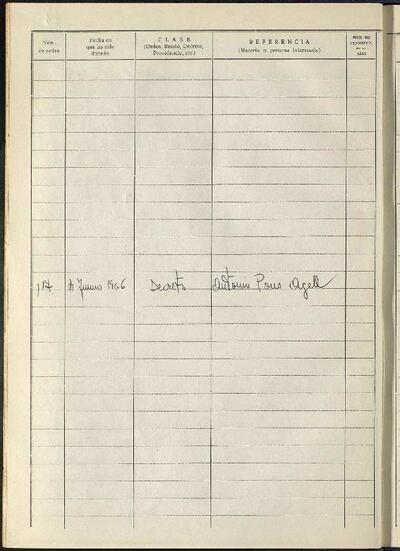 Núm. de orden
Fecha en que ha sido dictado
CLASE
(Orden, Bando, Decreto, Providencia, etc)
REFERENCIA
(Materia o persona interesada)
Junio 1966 Decreto Antonio Pons Agell